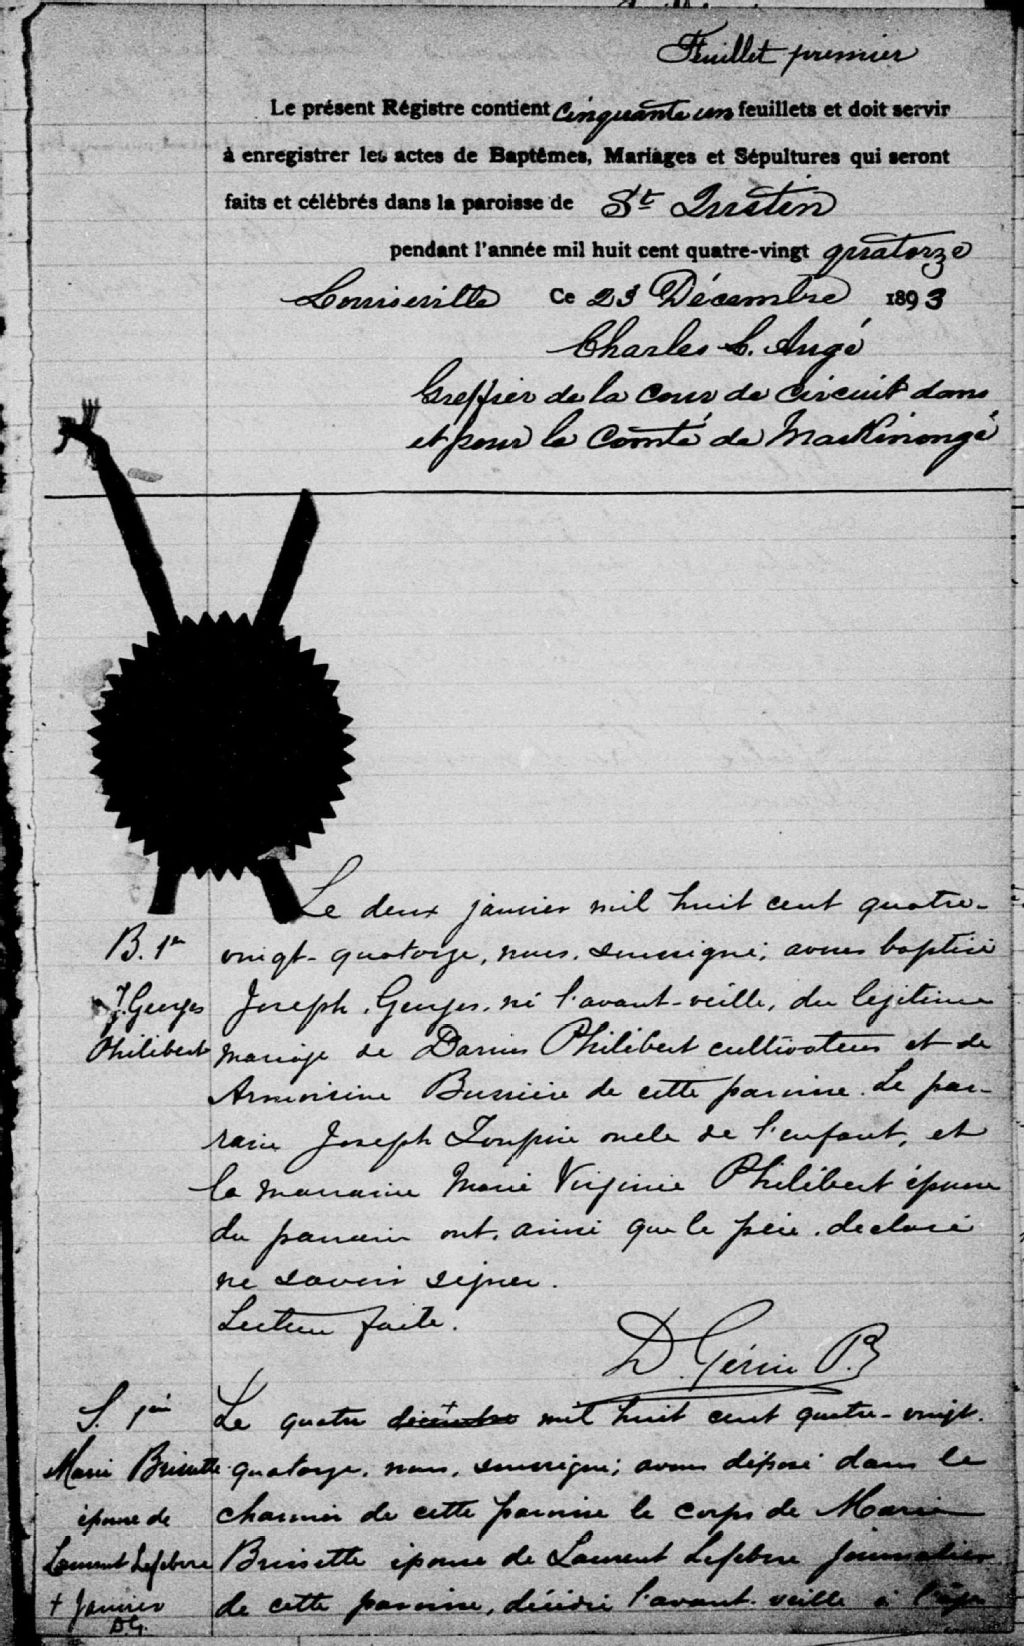 Feuillet premier
Le présent Régistre contient cinquante un feuillets et doit servir
à enregistrer les actes de Baptêmes, Mariages et Sépultures qui seront
faits et célébrés dans la paroisse de St Justin
pendant l'année mil huit cent quatre-vingt quatorze
Louiseville Ce 23 Décembre 1893
Charles L. Augé
Greffier de la Cour de Circuit dans
et pour le Comté de Maskinongé
Le deux janvier mil huit cent quatre-
B. 1er
vingt-quatorze, nous, soussigné, avons baptisé
J. Georges
Joseph, Georges, né l'avant-veille, du légitime
Philibert
mariage de Darius Philibert cultivateur et de
Armoisine Bussière de cette paroisse. Le par-
rain Joseph Toupin oncle de l'enfant, et
la marraine Marie Virginie Philibert épouse
du parrain ont, ainsi que le père, déclaré
ne savoir signer.
Lecture faite.
D. Gérin P.
S. 1ère
Le quatre décembre + mil huit cent quatre-vingt-
Marie Brissette
quatorze, nous, soussigné, avons déposé dans le
épouse de
charnier de cette paroisse le corps de Marie
Laurent Lefebvre
Brissette épouse de Laurent Lefebvre journalier
+ Janvier
de cette paroisse, décédée l'avant-veille à l'âge
DG.